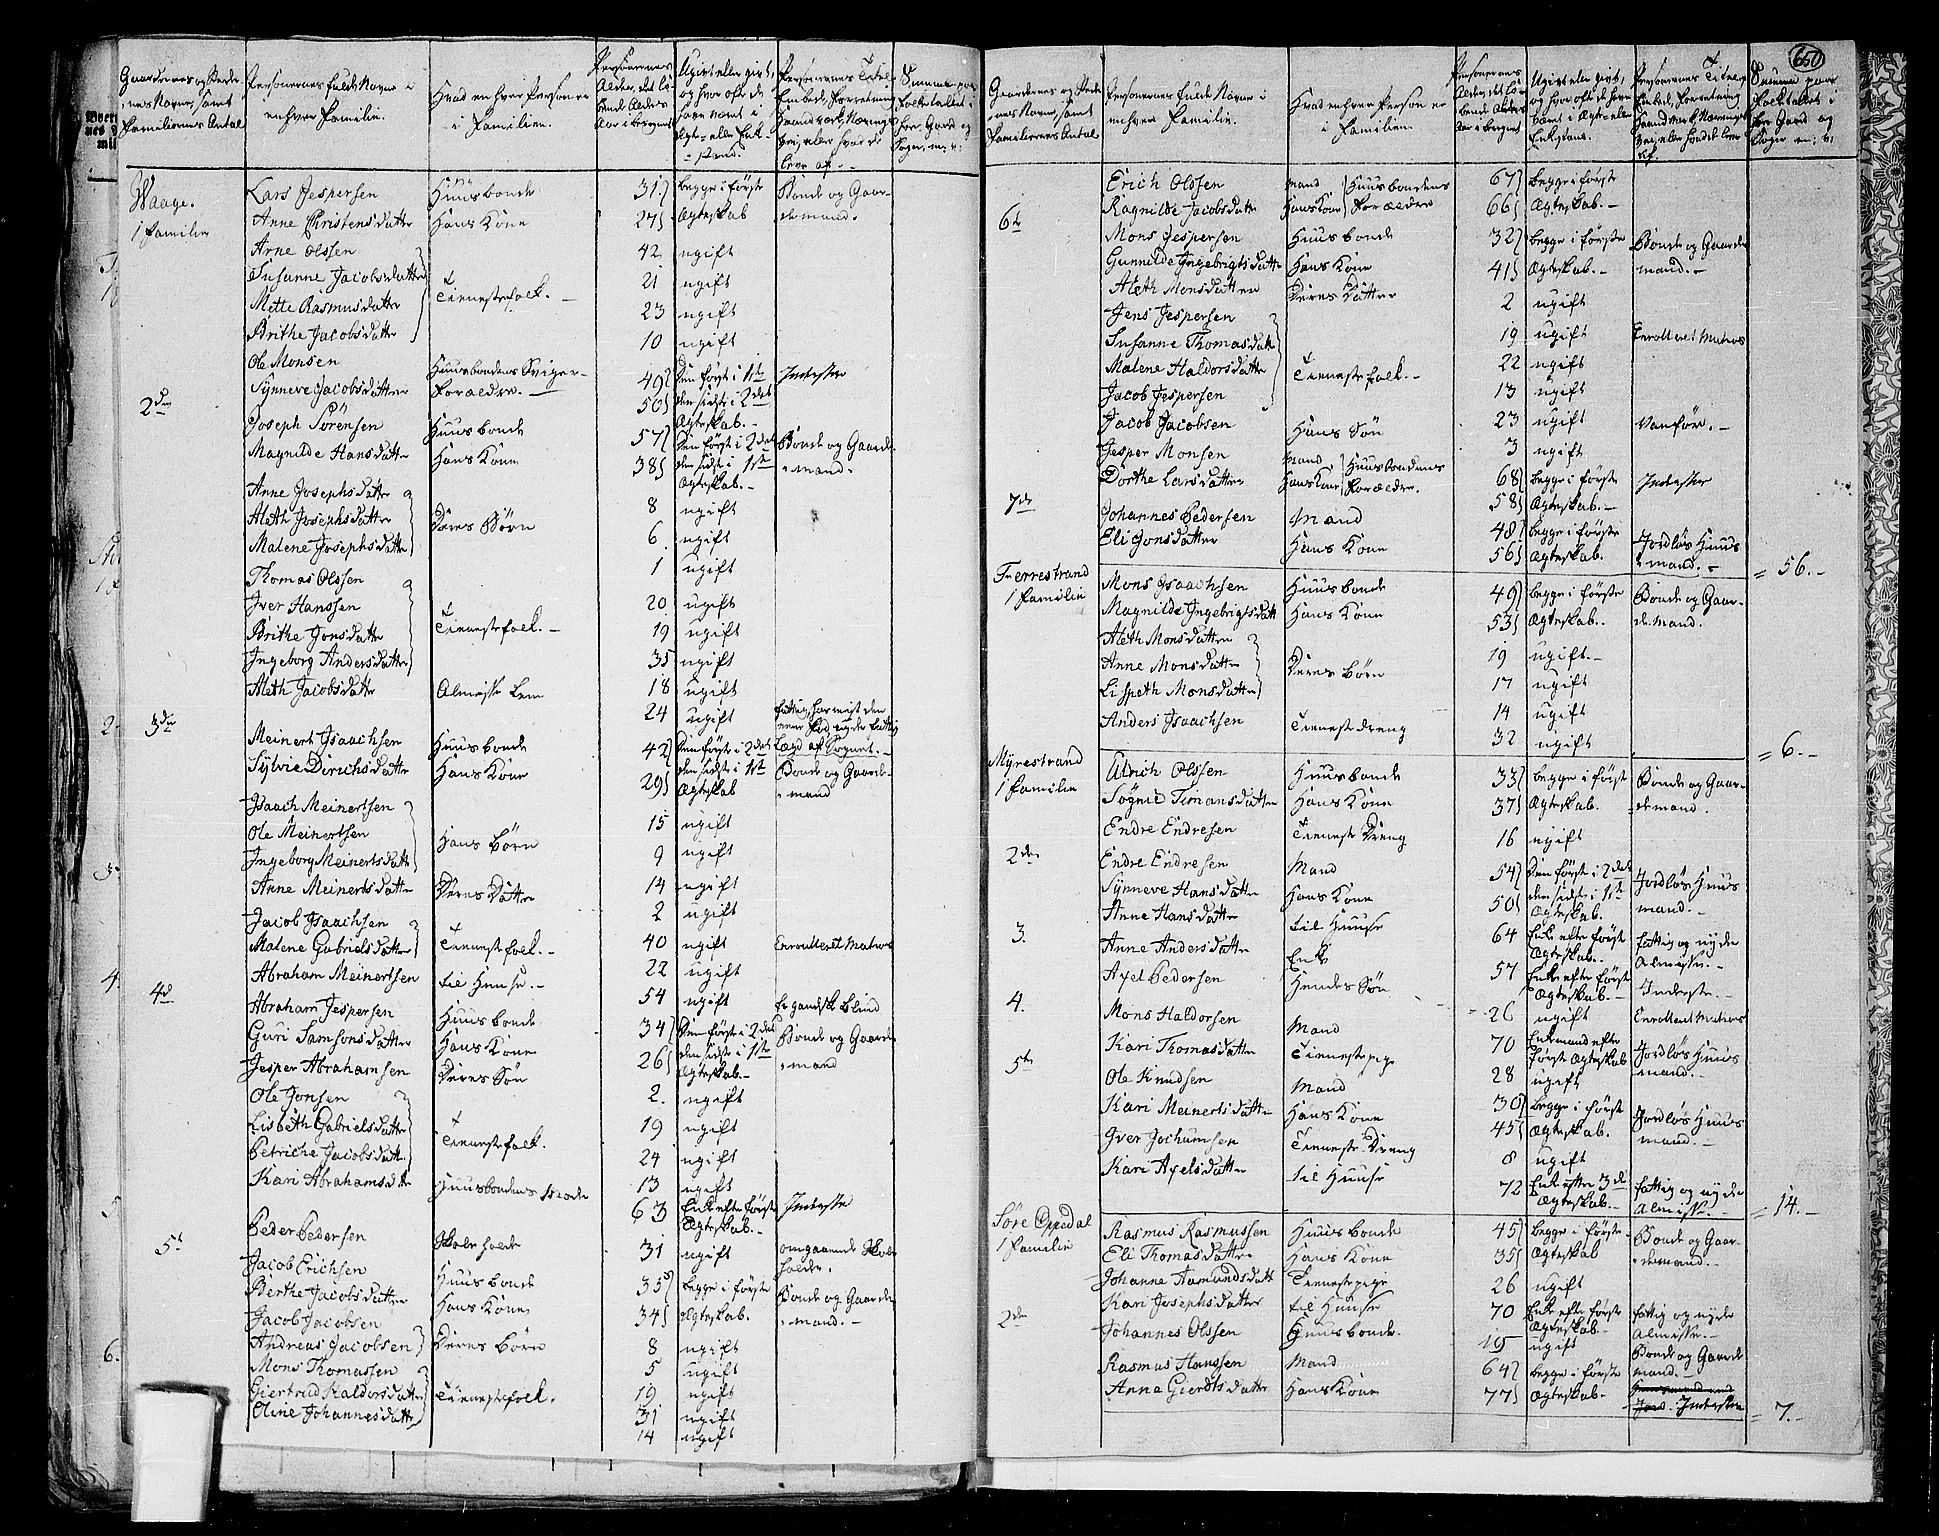 Gaardenes og Stedernes Navne, samt Familiernes Antal
Personernes fulde Navne i enhver Familie.
Hvad enhver Person er i Familien.
Personernes Alder, det Løbende Alders Aar iberegnet
Ugivt eller givt, og hvor oft de have været i Ægte- eller Enkestand.
Personernes Titel, Embede, Forretning, Haandværk, Nærings vei, eller hvad de leve af.
Waage. 1 Familie
Lars Jespersen Huusbonde 31 begge i første Bonde og Gaar-
Anne Christensdatter Hans Kone 27 Ægteskab demand.
Arne Olssen 42 ugift
Susanne Jacobsdatter 21 ugift
Mette Rasmusdatter Tienestefolk. 23 ugift
Brithe Jacobsdatter 10 ugift
Ole Monsen Huusbondens Sviger- 49 Den først i 1ste Inderster
Synneve Jacobsdatter Forældre. 50 den sidst i 2det Ægteskab.
2den
Joseph Sörensen Huusbonde 57 Den først i 2det Bonde og Gaard-
Magnilde Hansdatter Hans Kone 38 den sidst i 1ste Ægteskab. mand.
Anne Josephsdatter 8 ugift
Aleth Josephsdatter Deres Börn 6 ugift
Malene Josephsdatter 1 ugift
Thomas Olssen 20 ugift
Iver Hanssen 19 ugift
Brithe Jonsdatter Tienestefolk. 35 ugift
Ingeborg Andersdatter 18 ugift
Aleth Jacobsdatter Almisse Lem 24 ugift
3die
Meinert Isaachsen Huusbonde 42 Den først i 2det
Sylvie Dirichsdatter Hans Kone 29 den sidst i 1st Ægteskab Bonde og Gaard-mand
Isaach Meinertsen 15 ugift
Ole Meinertsen Hans Börn 9 ugift
Ingeborg Meinertsdatter 14 ugift
Anne Meinertsdatter Deres Datter 2 ugift
Jacob Isaachsen 40 ugift Enrolleret Matros
Malene Gabrielsdatter Tienestefolk. 22 ugift
Abraham Meinertsen til Huuse. 54 ugift Er gandske blind
4d
Abraham Jespersen Huusbonde 34 Den først i 2det Bonde og Gaard-
Guri Samsonsdatter Hans Kone 26 den sidst i 1ste Ægteskab. mand
Jesper Abrahamsen Deres Søn 2. ugift
Ole Jonsen 19 ugift
Lisbeth Gabrielsdatter Tienestefolk. 24 ugift
Petriche Jacobsdatter 13 ugift
Kari Abrahamsdtr Huusbondens Moder 63 Enke efter første Ægteskab. Inderste
Peder Pedersen Skoleholder 31 ugift omgaaende Skoleholder.
5t
Jacob Erichsen Huusbonde 35 begge i første Bonde og Gaard-
Berthe Jacobsdatter Hans Kone 34 Ægteskab. mand.
Jacob Jacobsen 8 ugift
Andreas Jacobsen Deres Börn 5 ugift
Mons Thomassen 19 ugift
Giertrud Haldorsdatter Tienestefolk. 31 ugift
Oline Johannesdatter 14 ugift
650
Gaardenes og Stedernes Navne, samt Familiernes Antal
Personernes fulde Navne i enhver Familie.
Hvad enhver Person er i Familien.
Erich Olssen Mand Huusbondens 67 begge i første
Ragnilde Jacobsdatter Hans Kone Forældre 66 Ægteskab.
6te
Mons Jespersen Huusbonde 32 begge i første Bonde og Gaard-
Gunnilde Ingebrigtsdatter Hans Kone 41 Ægteskab. mand.
Aleth Monsdatter Deres Datter 2 ugift
Jens Jespersen 19 ugift Enrolleret Matros
Susanne Thomasdatter 22 ugift
Malene Haldorsdatter Tienestefolk. 13 ugift
Jacob Jespersen 23 ugift Vanför.
Jacob Jacobsen Hans Søn 3 ugift
Jesper Monsen Mand Huusbondens 68 begge i første Inderster
Dorthe Larsdatter Hans Kone Forældre. 58 Ægteskab.
7de
Johannes Pedersen Mand 48 begge i første Jordløs Huus
Eli Jonsdatter Hans Kone 56 Ægteskab. mand. = 56.
Ferrestrand 1 Familie
Mons Isaachsen Huusbonde 49 begge i første Bonde og Gaar-
Magnilde Ingebrigtsdatt Hans Kone 53 Ægteskab. demand.
Aleth Monsdatter 19 ugift.
Anne Monsdatter Deres börn 17 ugift
Lispeth Monsdatter 14 ugift
Anders Isaachsen Tienestedreng 32 ugift = 6.
Myrestrand 1 Familie
Ulrich Olssen Huusbonde 33 begge i først Bonde og Gaar-
Søgnie Timansdatter Hans Kone 37 Ægteskab. demand.
Endre Endresen Tieneste Dreng 16 ugift
2den
Endre Endresen Mand 54 Den først i 2det Jordløs Huus
Synneve Hansdatter Hans Kone 50 den sidst i 1st Ægteskab. mand.
Anne Hansdatter til Huuse 64 Enke efter først Ægteskab. fattig og nyder Almisse.
3.
Anne Andersdatter Enke 57 Enke efter først Ægteskab. Inderste.
Axel Pedersen Hendes Søn 26 ugift Enrolleret Matros
4.
Mons Haldorsen Mand 70 Enkemand efter første Ægteskab Jordløs Huus mand.
Kari Thomasdatter Tienestepige 28 ugift
5te
Ole Knudsen Mand 30 begge i først Jordløs Huus
Kari Meinertsdatter Hans Kone 45 Ægteskab. mand.
Iver Jochumsen Tieneste Dreng 8 ugift
Kari Axelsdatter til Huuse 72 Enke efter 3die Ægteskab. fattig og nyder Almisse. = 14.
Søre Oppedal 1 Familie
Rasmus Rasmussen Huusbonde 45 begge i første Bonde og Gaar-
Eli Thomasdatter Hans Kone 35 Ægteskab demand.
Johanne Aamundsdatt Tienestepige 26 ugift
Kari Josephsdatter til Huuse 70 Enke efter første Ægteskab. fattig og nyder Almisse.
2den
Johannes Olssen Huusbonde. 19 ugift Bonde og Gaard-mand.
Rasmus Hanssen Mand 64 begge i første
Anna Gierdtsdatter Hans Kone 77 Ægteskab. Inderster = 7.